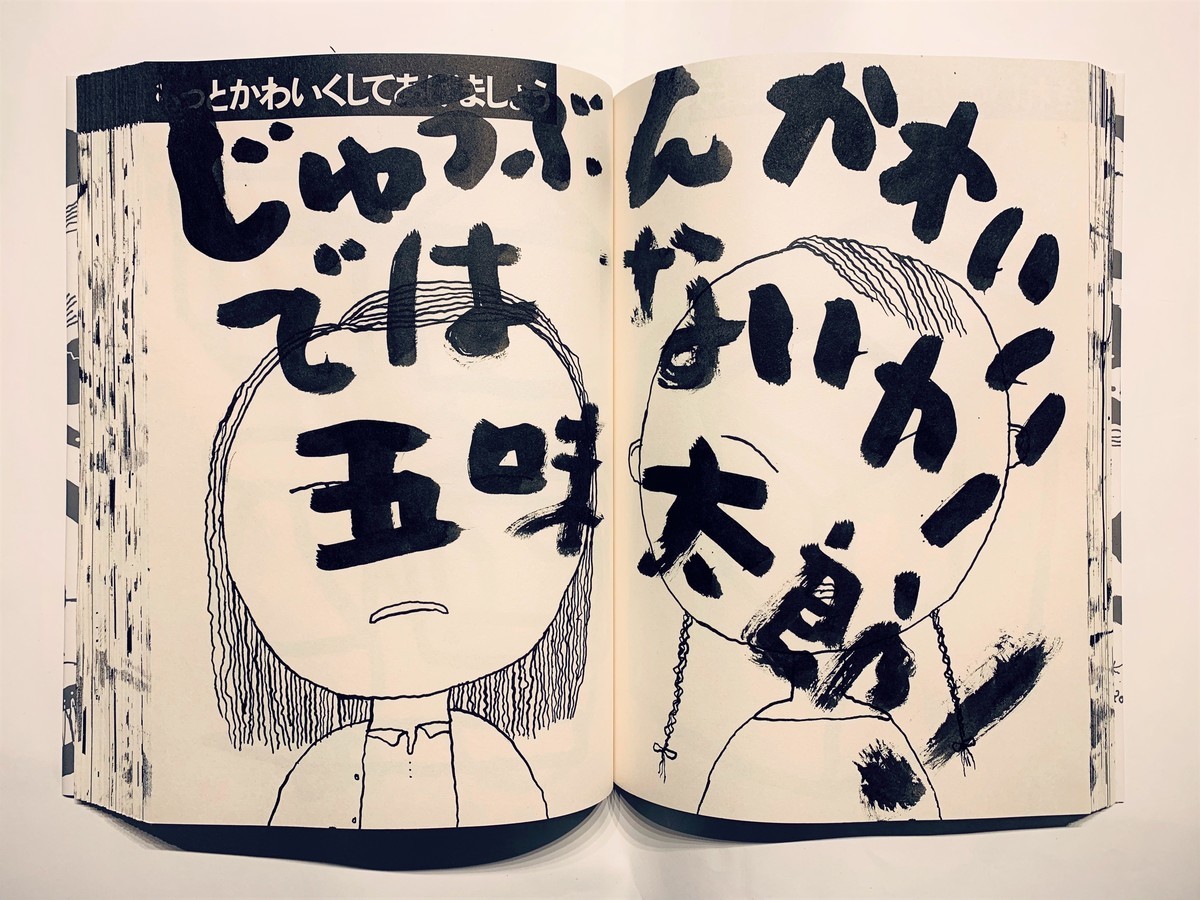 もっとかわいくしてあげましょう
じゅうぶんかわいい
ではないか!
五味太郎!